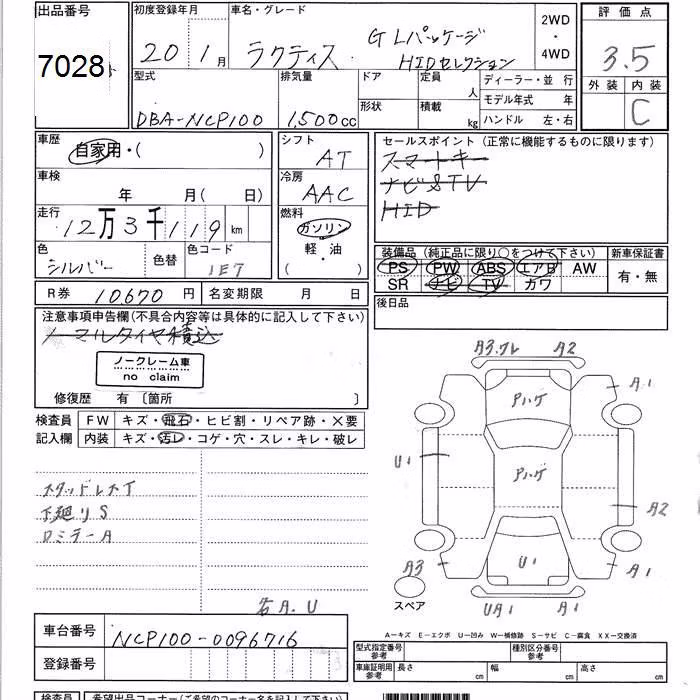 出品番号
7028
初度登録年月
20 1月
車名・グレード
ラクティス
G Lパッケージ
HIDセレクション
2WD
・
4WD
評価点
3.5
外装 内装
C
型式
DBA-NCP100
排気量
1,500cc
ドア
形状
定員
人
積載
kg
ディーラー・並 行
モデル年式 年
ハンドル 左・右
車歴
自家用・( )
車検
年 月( 日)
走行
12万3千119km
色
シルバー
色替
色コード
1E7
シフト
AT
冷房
AAC
燃料
ガソリン
軽・油
( )
セールスポイント(正常に機能するものに限ります)
スマートキー
ナビ&TV
HID
装備品(純正品に限り○をつけて下さい)
PS PW ABS エアB AW
SR ナビ TV カワ
新車保証書
有・無
後日品
R券 10670円
名変期限 月 日
注意事項申告欄(不具合内容等は具体的に記入して下さい)
ノーマルタイヤ積込
ノークレーム車
no claim
修復歴 有〔箇所 〕
検査員
記入欄
FW キズ・飛石・ヒビ割・リペア跡・×要
内装 キズ・汚レ・コゲ・穴・スレ・キレ・破レ
スタッドレスT
下廻りS
ロミラーA
名A.U
A3.ワレ A2
A1
Pハゲ
U1
Pハゲ
A2
A3
U1
A1
UA1 A1
スペア
A-キズ E-エクボ U-凹み W-補修跡 S-サビ C-腐食 XX-交換済
車台番号
NCP100-0096716
登録番号
型式指定番号
参考
種別区分番号
参考
車庫証明用
参考
長さ cm
幅 cm
高さ cm
検査員
希望出品コーナー(ご希望のコーナー名を記入下さい)